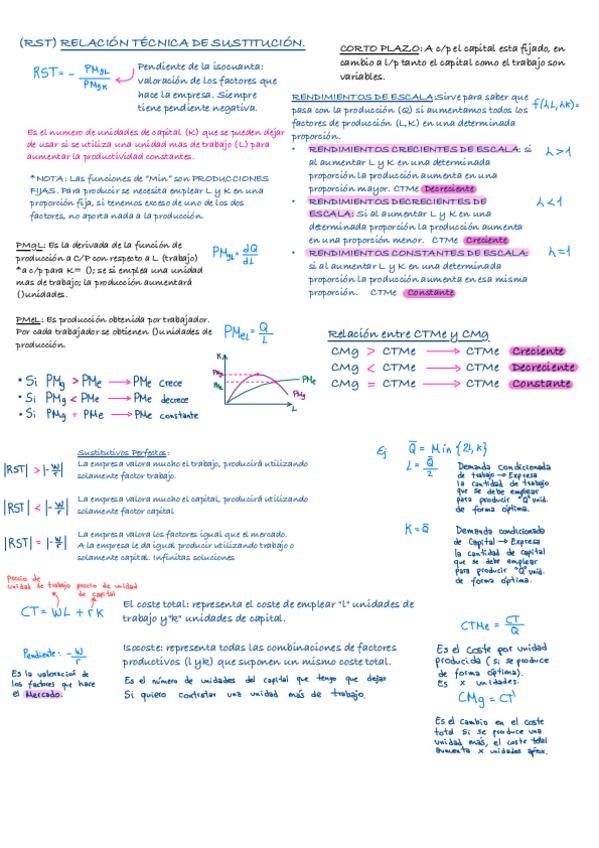 (RST) RELACIÓN TÉCNICA DE SUSTITUCIÓN.
RST = - PMgL / PMgK
Pendiente de la isocuanta:
valoración de los factores que
hace la empresa. Siempre
tiene pendiente negativa.
Es el numero de unidades de capital (K) que se pueden dejar
de usar si se utiliza una unidad mas de trabajo (L) para
aumentar la productividad constantes.
*NOTA: Las funciones de "Min" son PRODUCCIONES
FIJAS. Para producir se necesita emplear L y K en una
proporción fija, si tenemos exceso de uno de los dos
factores, no aporta nada a la producción.
PMgL: Es la derivada de la función de
producción a C/P con respecto a L (trabajo)
*a c/p para K= (); se si emplea una unidad
mas de trabajo; la producción aumentará
()unidades.
PMgL = dQ / dL
PMeL: Es producción obtenida por trabajador.
Por cada trabajador se obtienen ()unidades de
producción.
PMeL = Q / L
• Si PMg > PMe → PMe crece
• Si PMg < PMe → PMe decrece
• Si PMg = PMe → PMe constante
K
PMg
PMe
PMg
L
CORTO PLAZO: A c/p el capital esta fijado, en
cambio a l/p tanto el capital como el trabajo son
variables.
RENDIMIENTOS DE ESCALA: Sirve para saber que
pasa con la producción (Q) si aumentamos todos los
factores de producción (L,K) en una determinada
proporción.
f(λL, λK)=
• RENDIMIENTOS CRECIENTES DE ESCALA: si
al aumentar L y K en una determinada
proporción la producción aumenta en una
proporción mayor. CTMe Decreciente
λ>1
• RENDIMIENTOS DECRECIENTES DE
ESCALA: Si al aumentar L y K en una
determinada proporción la producción aumenta
en una proporción menor. CTMe Creciente
λ<1
• RENDIMIENTOS CONSTANTES DE ESCALA:
si al aumentar L y K en una determinada
proporción la producción aumenta en esa misma
proporción. CTMe Constante
λ=1
Relación entre CTMe y CMg
CMg > CTMe → CTMe Creciente
CMg < CTMe → CTMe Decreciente
CMg = CTMe → CTMe Constante
Sustitutivos Perfectos:
|RST| > |-w/r|
La empresa valora mucho el trabajo, producirá utilizando
solamente factor trabajo.
|RST| < |-w/r|
La empresa valora mucho el capital, producirá utilizando
solamente factor capital
|RST| = |-w/r|
La empresa valora los factores igual que el mercado.
A la empresa le da igual producir utilizando trabajo o
solamente capital. Infinitas soluciones
Ej Q̄ = Min {2l, k}
L = Q̄ / 2
Demanda condicionada
de trabajo → Expresa
la cantidad de trabajo
que se debe emplear
para producir "Q" unid.
de forma óptima.
K = Q̄
Demanda condicionada
de Capital → Expresa
la cantidad de capital
que se debe emplear
para producir "Q" unid.
de forma óptima.
precio de
unidad de trabajo
precio de unidad
de capital
CT = wL + rK
El coste total: representa el coste de emplear "l" unidades de
trabajo y"k" unidades de capital.
Pendiente: -w/r
Es la valoración de
los factores que hace
el Mercado.
Isocoste: representa todas las combinaciones de factores
productivos (l y k) que suponen un mismo coste total.
Es el número de unidades del capital que tengo que dejar
Si quiero contratar una unidad más de trabajo.
CTMe = CT / Q
Es el coste por unidad
producida (si se produce
de forma óptima).
Es x unidades.
CMg = CT'
Es el cambio en el coste
total si se produce una
unidad más, el coste total
aumenta x unidades aprox.